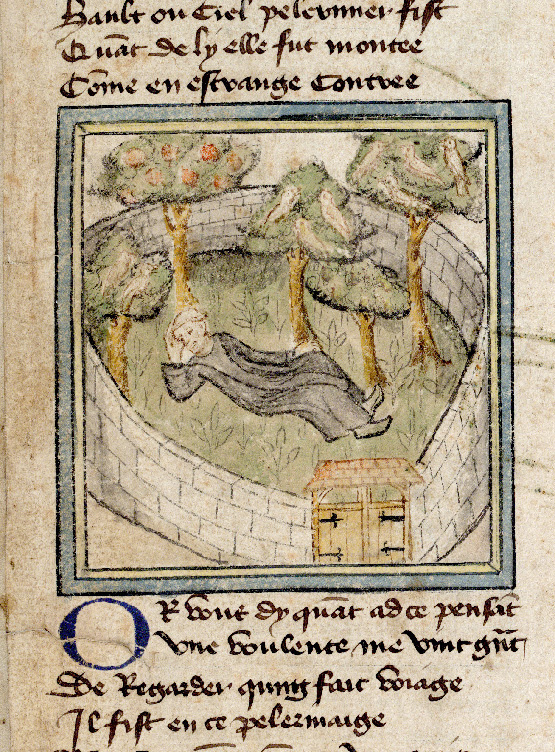 Hault ou Ciel peleriner fist
Quāt de ly elle fut montee
Cōme en estrange Contree
OR vous dy quāt ad ce pensāt
Vne voulente me vint
De Regarder quing fait voiage
Il fist en ce pelermaige